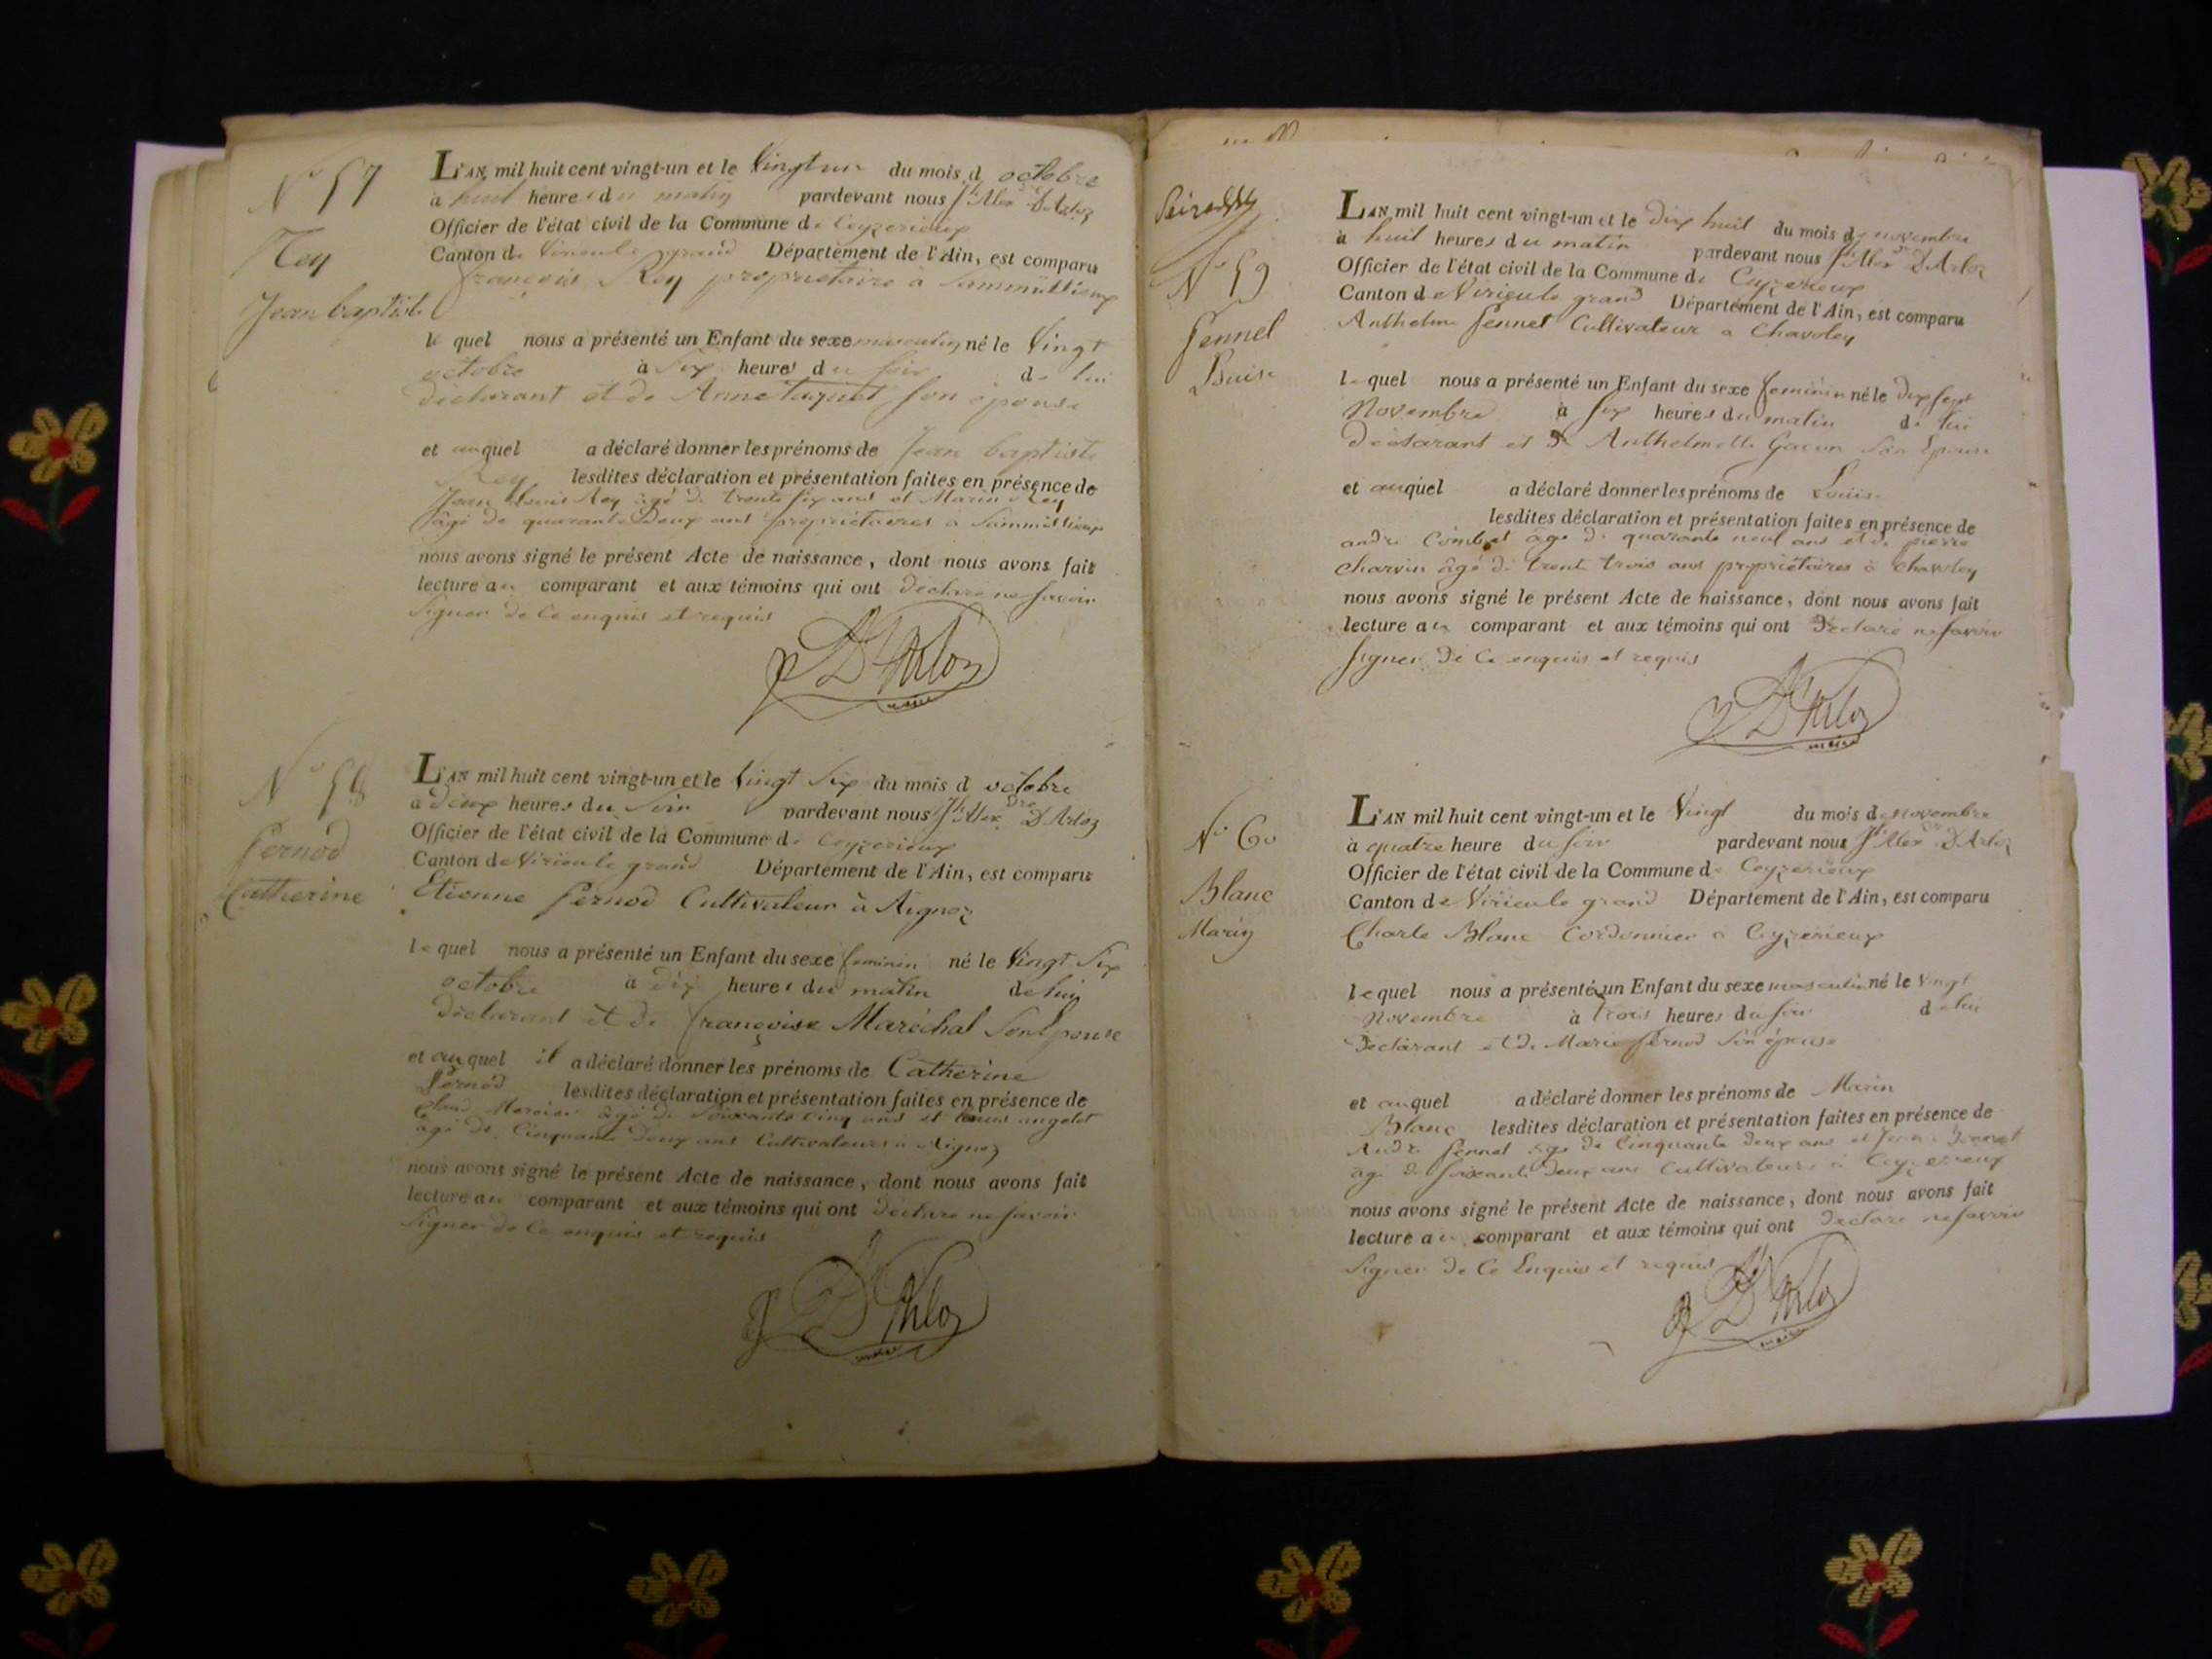 N° 57
Rey
Jean baptiste
L'AN mil huit cent vingt-un et le Vingt un du mois d octobre
à huit heures du matin pardevant nous Jh Alex dre D'Arloz
Officier de l'état civil de la Commune de Ceyzerieux
Canton de Virieu le grand Département de l'Ain, est comparu
françois Rey propriétaire à Sammissieux
le quel nous a présenté un Enfant du sexe masculin né le Vingt
octobre à Six heures du soir de lui
déclarant et de Anne Taquet son épouse
et auquel a déclaré donner les prénoms de Jean baptiste
Rey lesdites déclaration et présentation faites en présence de
Jean Louis Rey âgé de trente six ans et Marin Rey
âgé de quarante deux ans propriétaires à Sammissieux
nous avons signé le présent Acte de naissance, dont nous avons fait
lecture au comparant et aux témoins qui ont déclaré ne savoir
signer de ce enquis et requis
D'Arloz
maire
N° 58
Pernod
Catherine
L'AN mil huit cent vingt-un et le Vingt Six du mois d octobre
à deux heures du Soir pardevant nous Jh Alex dre D'Arloz
Officier de l'état civil de la Commune de Ceyzerieux
Canton de Virieu le grand Département de l'Ain, est comparu
Etienne Pernod Cultivateur à Aignoz
le quel nous a présenté un Enfant du sexe feminin né le Vingt Six
octobre à dix heures du matin de lui
déclarant et de françoise Maréchal Son Epouse
et auquel il a déclaré donner les prénoms de Catherine
Pernod lesdites déclaration et présentation faites en présence de
Claud Mercier âgé de Soixante Cinq ans et Louis angelot
âgé de Cinquante deux ans Cultivateurs à Aignoz
nous avons signé le présent Acte de naissance, dont nous avons fait
lecture au comparant et aux témoins qui ont déclaré ne savoir
Signer de Ce enquis et requis
D'Arloz
maire
N° 59
Pennel
Louise
L'AN mil huit cent vingt-un et le dix huit du mois de novembre
à huit heures du matin pardevant nous Jh Alex dre D'Arloz
Officier de l'état civil de la Commune de Ceyzerieux
Canton de Virieu le grand Département de l'Ain, est comparu
Anthelme Pennel Cultivateur à Chavoley
le quel nous a présenté un Enfant du sexe feminin né le dix sept
Novembre à six heures du matin de lui
déclarant et de Anthelmette Gacon Son Epouse
et auquel a déclaré donner les prénoms de Louise
lesdites déclaration et présentation faites en présence de
andré Combet âgé de quarante neuf ans et de pierre
charvin âgé de trente trois ans propriétaires à Chavoley
nous avons signé le présent Acte de naissance, dont nous avons fait
lecture au comparant et aux témoins qui ont déclaré ne savoir
signer de Ce enquis et requis
D'Arloz
maire
N° 60
Blanc
Marin
L'AN mil huit cent vingt-un et le Vingt du mois de novembre
à quatre heure du soir pardevant nous Jh Alex dre D'Arloz
Officier de l'état civil de la Commune de Ceyzerieux
Canton de Virieu le grand Département de l'Ain, est comparu
Charle Blanc Cordonnier à Ceyzerieux
le quel nous a présenté un Enfant du sexe masculin né le Vingt
Novembre à trois heures du soir de lui
Déclarant et de Marie Pernod Son épouse
et auquel a déclaré donner les prénoms de Marin
Blanc lesdites déclaration et présentation faites en présence de
André Pennel âgé de Cinquante deux ans et
âgé de soixante deux ans Cultivateurs à Ceyzerieux
nous avons signé le présent Acte de naissance, dont nous avons fait
lecture au comparant et aux témoins qui ont déclaré ne savoir
Signer de Ce Enquis et requis
D'Arloz
maire